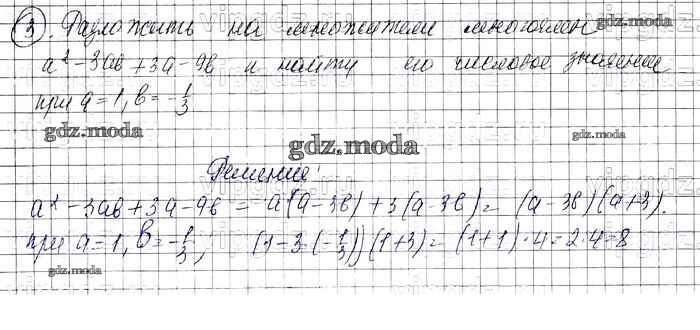 3. Разложить на множители многочлен gdz.moda
a² - 3ab + 3a - 9b и найти его числовое значение
при a = 1, b = -1/3
gdz.moda gdz.moda
gdz.moda
Решение:
a² - 3ab + 3a - 9b = a(a - 3b) + 3(a - 3b) = (a - 3b)(a + 3).
при a = 1, b = -1/3, (1 - 3·(-1/3))(1 + 3) = (1 + 1)·4 = 2·4 = 8
gdz.moda gdz.moda